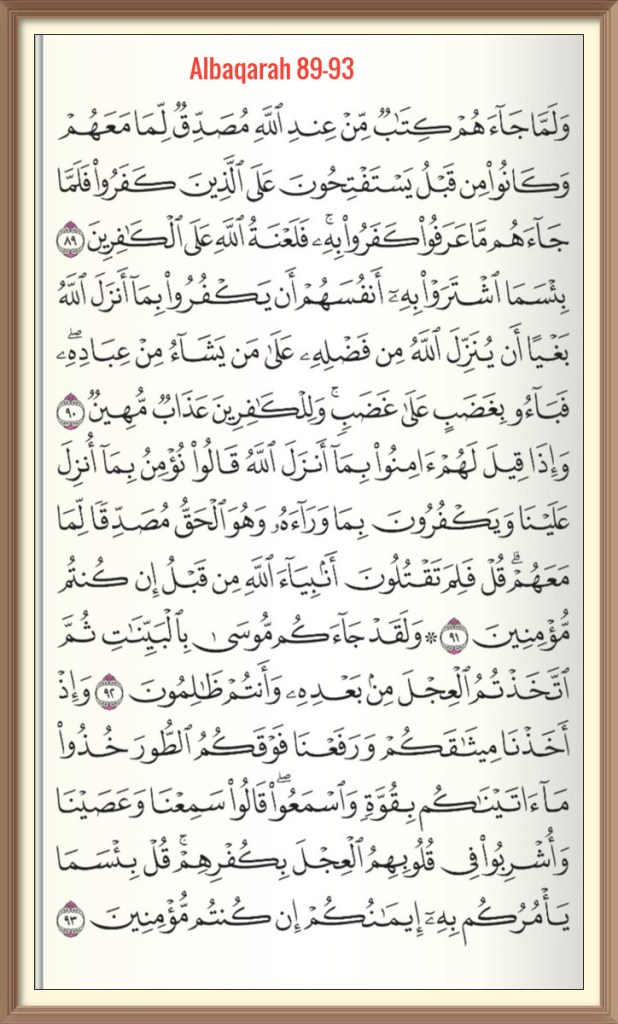 Albaqarah 89-93
وَلَمَّا جَآءَهُمْ كِتَٰبٌ مِّنْ عِندِ ٱللَّهِ مُصَدِّقٌ لِّمَا مَعَهُمْ
وَكَانُوا۟ مِن قَبْلُ يَسْتَفْتِحُونَ عَلَى ٱلَّذِينَ كَفَرُوا۟ فَلَمَّا
جَآءَهُم مَّا عَرَفُوا۟ كَفَرُوا۟ بِهِۦ ۚ فَلَعْنَةُ ٱللَّهِ عَلَى ٱلْكَٰفِرِينَ ٨٩
بِئْسَمَا ٱشْتَرَوْا۟ بِهِۦٓ أَنفُسَهُمْ أَن يَكْفُرُوا۟ بِمَآ أَنزَلَ ٱللَّهُ
بَغْيًا أَن يُنَزِّلَ ٱللَّهُ مِن فَضْلِهِۦ عَلَىٰ مَن يَشَآءُ مِنْ عِبَادِهِۦ ۖ
فَبَآءُو بِغَضَبٍ عَلَىٰ غَضَبٍ ۚ وَلِلْكَٰفِرِينَ عَذَابٌ مُّهِينٌ ٩٠
وَإِذَا قِيلَ لَهُمْ ءَامِنُوا۟ بِمَآ أَنزَلَ ٱللَّهُ قَالُوا۟ نُؤْمِنُ بِمَآ أُنزِلَ
عَلَيْنَا وَيَكْفُرُونَ بِمَا وَرَآءَهُۥ وَهُوَ ٱلْحَقُّ مُصَدِّقًا لِّمَا
مَعَهُمْ ۗ قُلْ فَلِمَ تَقْتُلُونَ أَنۢبِيَآءَ ٱللَّهِ مِن قَبْلُ إِن كُنتُم
مُّؤْمِنِينَ ٩١ ۞ وَلَقَدْ جَآءَكُم مُّوسَىٰ بِٱلْبَيِّنَٰتِ ثُمَّ
ٱتَّخَذْتُمُ ٱلْعِجْلَ مِنۢ بَعْدِهِۦ وَأَنتُمْ ظَٰلِمُونَ ٩٢ وَإِذْ
أَخَذْنَا مِيثَٰقَكُمْ وَرَفَعْنَا فَوْقَكُمُ ٱلطُّورَ خُذُوا۟
مَآ ءَاتَيْنَٰكُم بِقُوَّةٍ وَٱسْمَعُوا۟ ۖ قَالُوا۟ سَمِعْنَا وَعَصَيْنَا
وَأُشْرِبُوا۟ فِى قُلُوبِهِمُ ٱلْعِجْلَ بِكُفْرِهِمْ ۚ قُلْ بِئْسَمَا
يَأْمُرُكُم بِهِۦٓ إِيمَٰنُكُمْ إِن كُنتُم مُّؤْمِنِينَ ٩٣